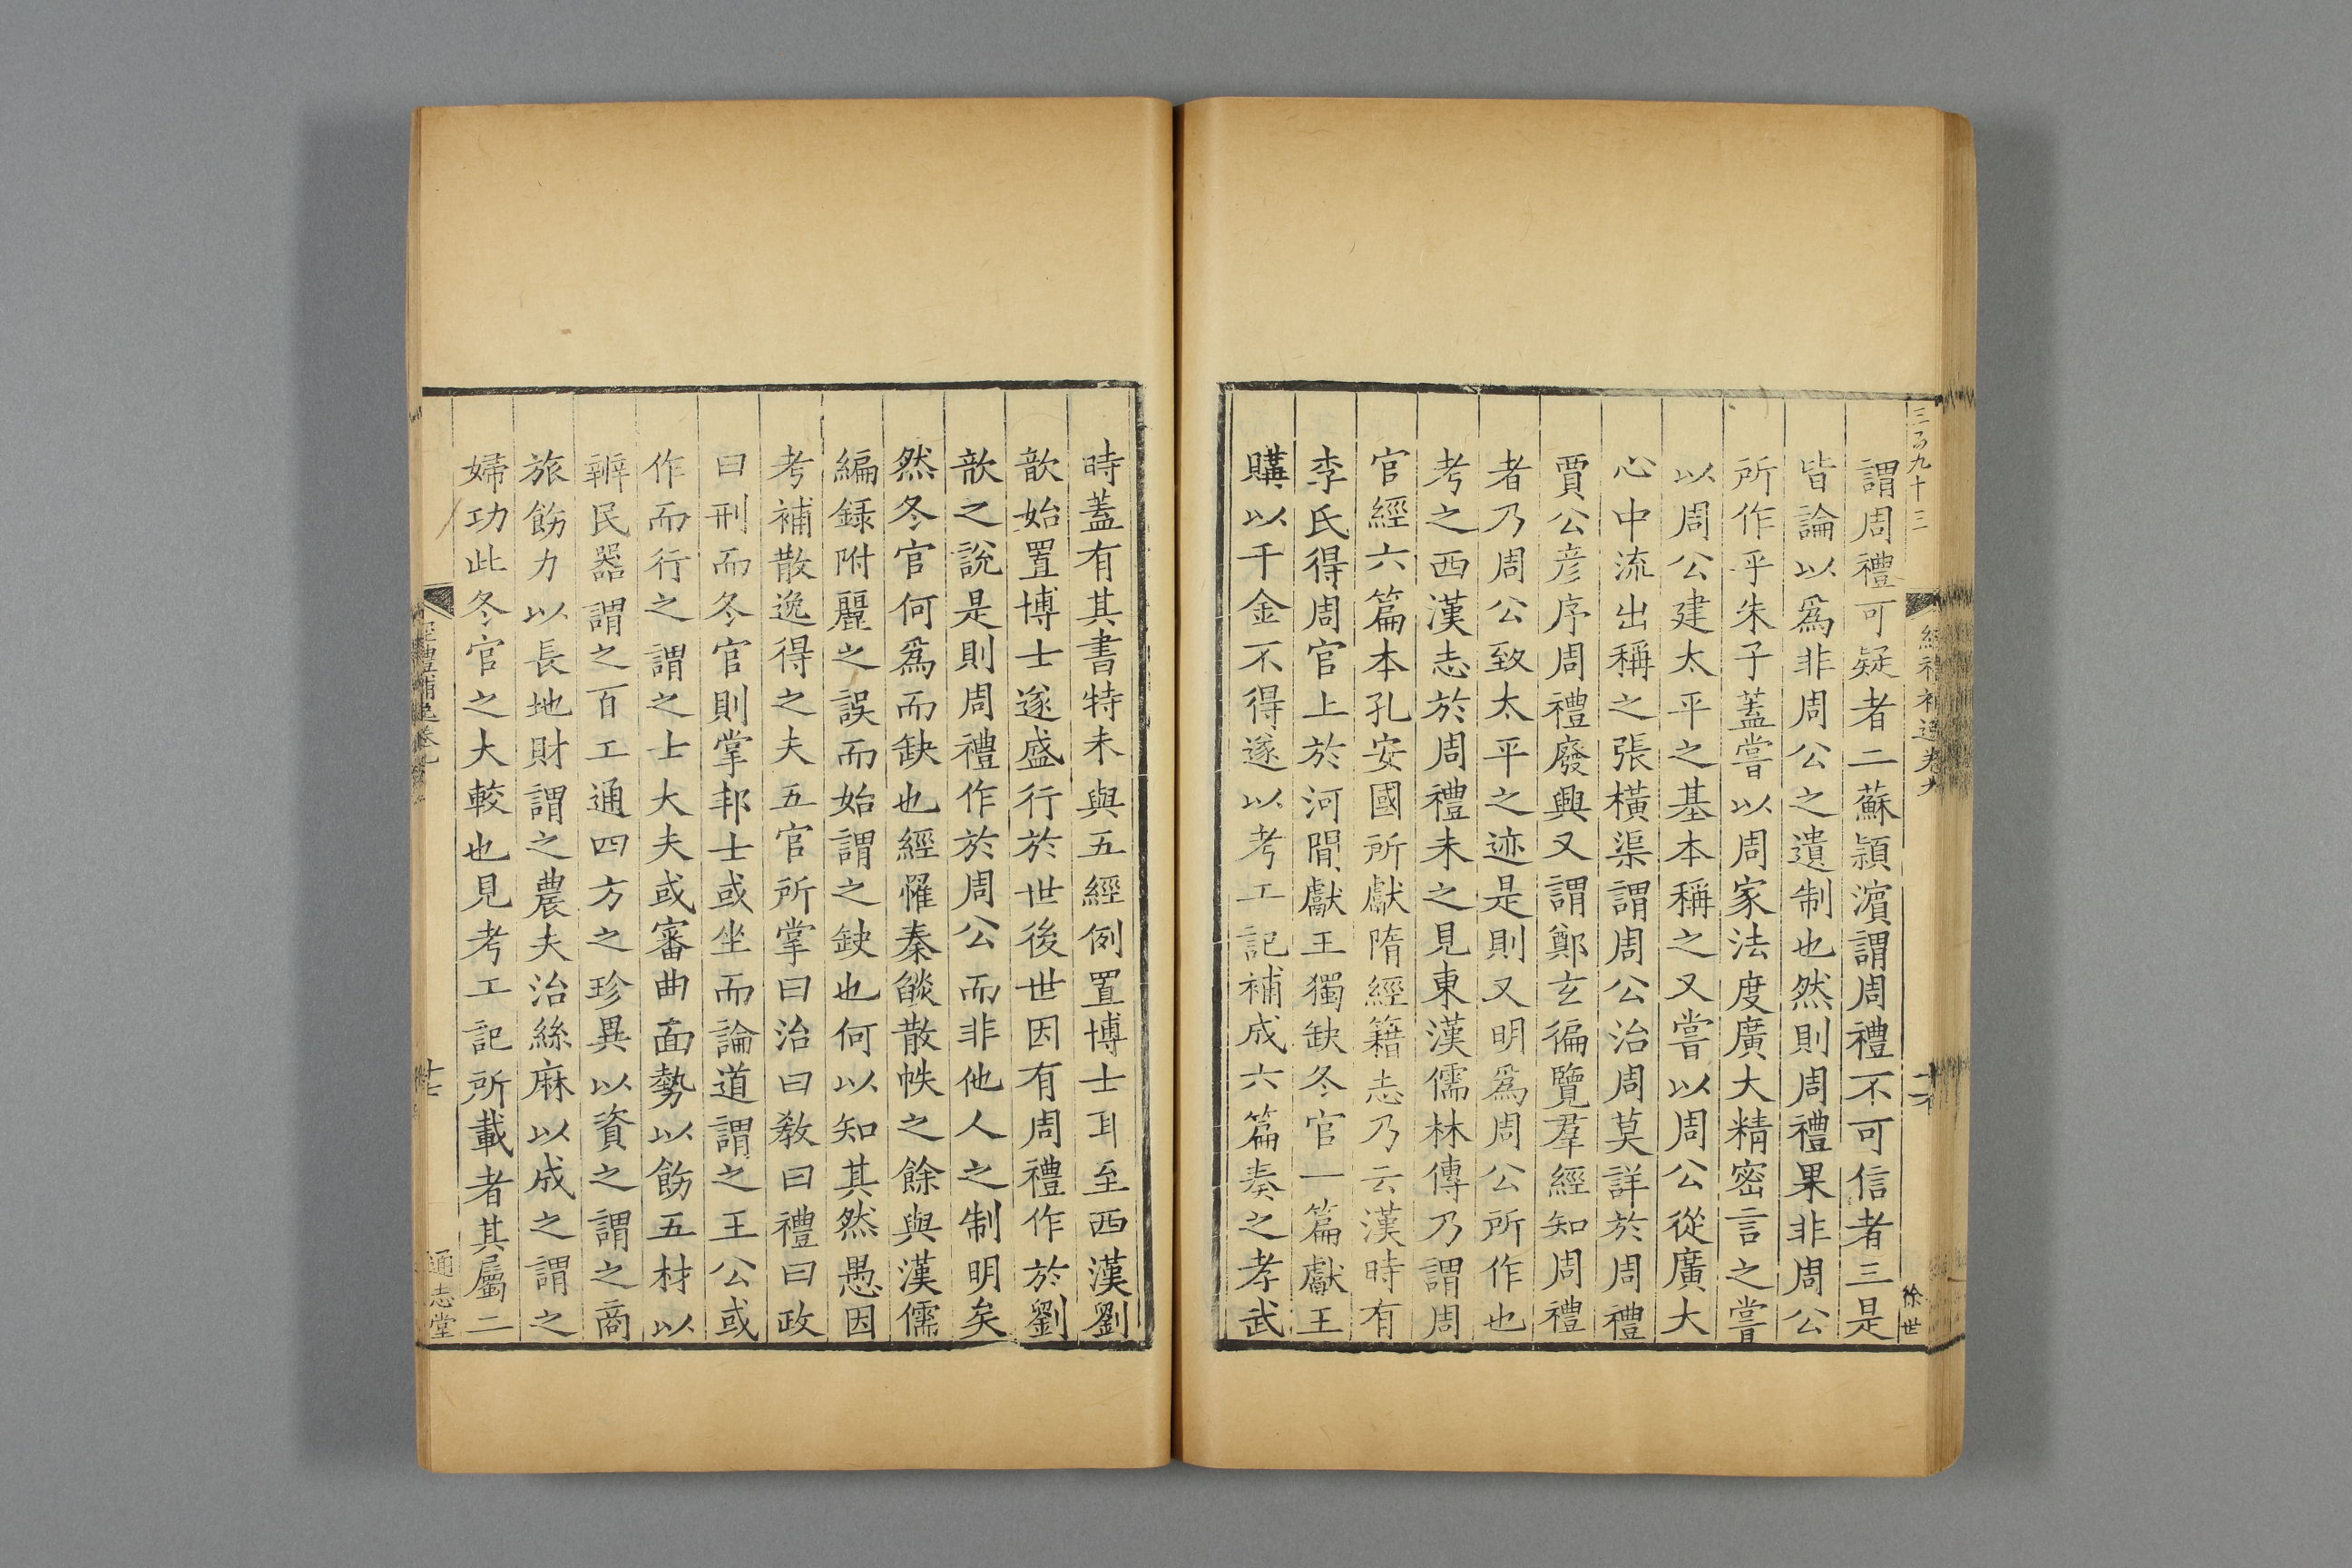 三百九十三
經禮補逸卷九
十六
徐世
謂周禮可疑者二蘇潁濵謂周禮不可信者三是
皆論以爲非周公之遺制也然則周禮果非周公
所作乎朱子蓋嘗以周家法度廣大精密言之嘗
以周公建太平之基本稱之又嘗以周公從廣大
心中流出稱之張橫渠謂周公治周莫詳於周禮
賈公彦序周禮廢興又謂鄭玄徧覽羣經知周禮
者乃周公致太平之迹是則又明爲周公所作也
考之西漢志於周禮未之見東漢儒林傳乃謂周
官經六篇本孔安國所獻隋經籍志乃云漢時有
李氏得周官上於河閒獻王獨缺冬官一篇獻王
購以千金不得遂以考工記補成六篇奏之孝武
時蓋有其書特未與五經例置博士耳至西漢劉
歆始置博士遂盛行於世後世因有周禮作於劉
歆之說是則周禮作於周公而非他人之制明矣
然冬官何爲而缺也經罹秦燄散帙之餘與漢儒
編録附麗之誤而始謂之缺也何以知其然愚因
考補散逸得之夫五官所掌曰治曰敎曰禮曰政
曰刑而冬官則掌邦士或坐而論道謂之王公或
作而行之謂之士大夫或審曲面勢以飭五材以
辨民器謂之百工通四方之珍異以資之謂之商
旅飭力以長地財謂之農夫治絲麻以成之謂之
婦功此冬官之大較也見考工記所載者其屬二
經禮補逸卷九
十七
通志堂